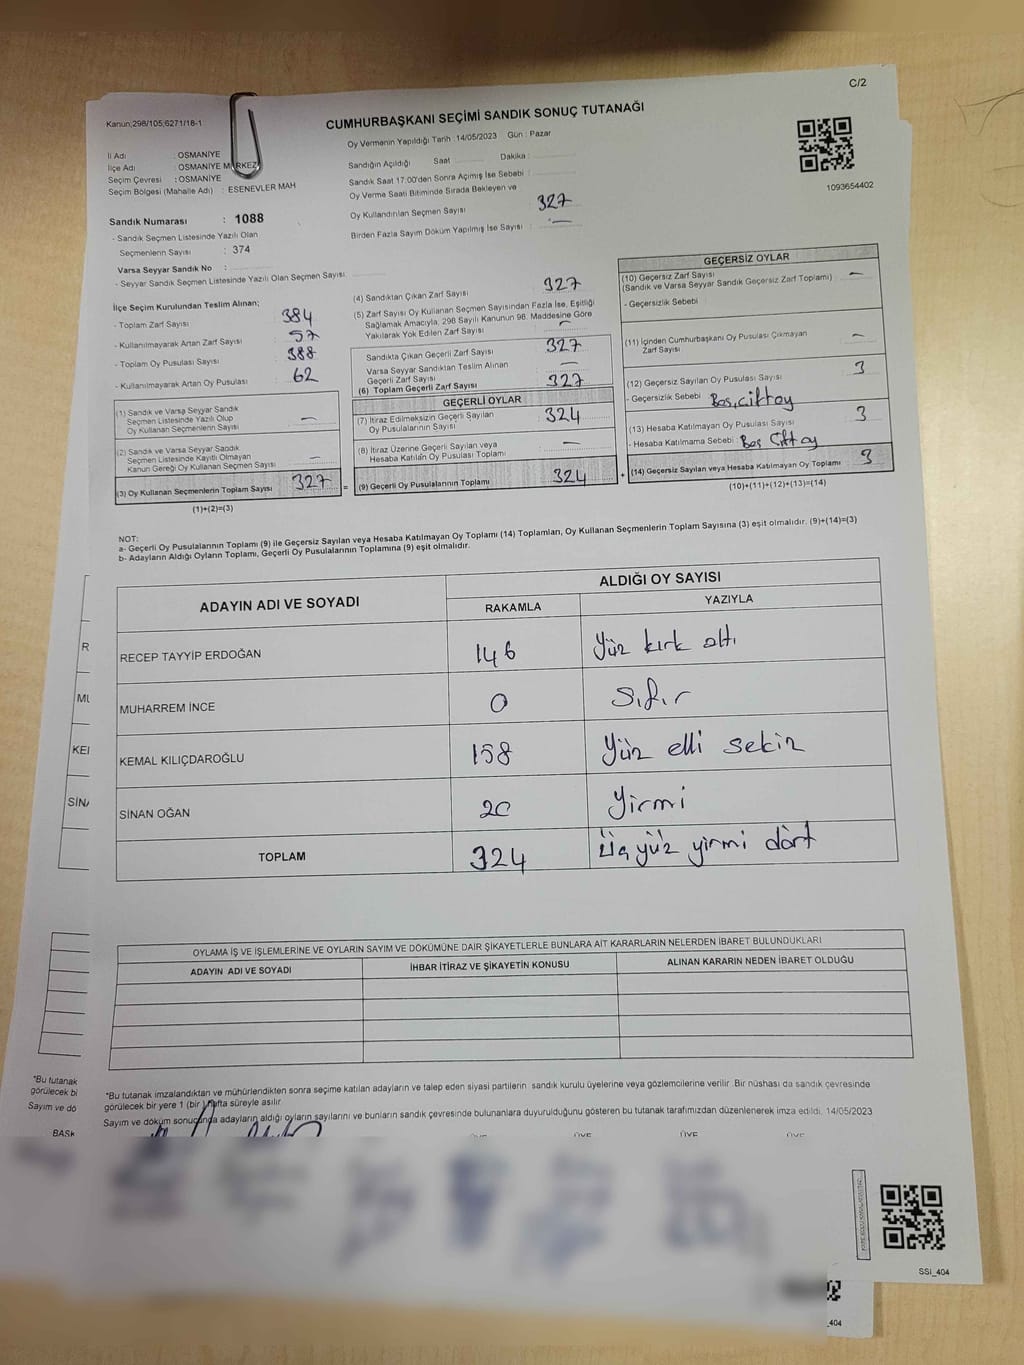 C/2
Kanun;298/105;6271/18-1
CUMHURBAŞKANI SEÇİMİ SANDIK SONUÇ TUTANAĞI
Oy Vermenin Yapıldığı Tarih :14/05/2023 Gün : Pazar
İl Adı : OSMANİYE
İlçe Adı : OSMANİYE MERKEZ
Seçim Çevresi : OSMANİYE
Seçim Bölgesi (Mahalle Adı) : ESENEVLER MAH
Sandığın Açıldığı Saat Dakika :
Sandık Saat 17.00'den Sonra Açılmış İse Sebebi :
Oy Verme Saati Bitiminde Sırada Bekleyen ve
Oy Kullandırılan Seçmen Sayısı 327
Birden Fazla Sayım Döküm Yapılmış İse Sayısı : —
1093654402
Sandık Numarası : 1088
- Sandık Seçmen Listesinde Yazılı Olan
Seçmenlerin Sayısı : 374
Varsa Seyyar Sandık No :
- Seyyar Sandık Seçmen Listesinde Yazılı Olan Seçmen Sayısı
İlçe Seçim Kurulundan Teslim Alınan;
- Toplam Zarf Sayısı 384
- Kullanılmayarak Artan Zarf Sayısı 57
- Toplam Oy Pusulası Sayısı 388
- Kullanılmayarak Artan Oy Pusulası 62
(1) Sandık ve Varsa Seyyar Sandık
Seçmen Listesinde Yazılı Olup
Oy Kullanan Seçmenlerin Sayısı —
(2) Sandık ve Varsa Seyyar Sandık
Seçmen Listesinde Kayıtlı Olmayan
Kanun Gereği Oy Kullanan Seçmen Sayısı —
(3) Oy Kullanan Seçmenlerin Toplam Sayısı 327 =
(1)+(2)=(3)
(4) Sandıktan Çıkan Zarf Sayısı 327
(5) Zarf Sayısı Oy Kullanan Seçmen Sayısından Fazla İse, Eşitliği
Sağlamak Amacıyla, 298 Sayılı Kanunun 98. Maddesine Göre
Yakılarak Yok Edilen Zarf Sayısı —
Sandıkta Çıkan Geçerli Zarf Sayısı 327
Varsa Seyyar Sandıktan Teslim Alınan
Geçerli Zarf Sayısı —
(6) Toplam Geçerli Zarf Sayısı 327
GEÇERLİ OYLAR
(7) İtiraz Edilmeksizin Geçerli Sayılan
Oy Pusulasının Sayısı 324
(8) İtiraz Üzerine Geçerli Sayılan veya
Hesaba Katılan Oy Pusulası Toplamı —
(9) Geçerli Oy Pusulalarının Toplamı 324 +
GEÇERSİZ OYLAR
(10) Geçersiz Zarf Sayısı
(Sandık ve Varsa Seyyar Sandık Geçersiz Zarf Toplamı) —
- Geçersizlik Sebebi
(11) İçinden Cumhurbaşkanı Oy Pusulası Çıkmayan
Zarf Sayısı —
(12) Geçersiz Sayılan Oy Pusulası Sayısı 3
- Geçersizlik Sebebi Boş, çift oy
(13) Hesaba Katılmayan Oy Pusulası Sayısı 3
- Hesaba Katılmama Sebebi : Boş Çift oy
(14) Geçersiz Sayılan veya Hesaba Katılmayan Oy Toplamı 3
(10)+(11)+(12)+(13)=(14)
NOT:
a- Geçerli Oy Pusulalarının Toplamı (9) ile Geçersiz Sayılan veya Hesaba Katılmayan Oy Toplamı (14) Toplamları, Oy Kullanan Seçmenlerin Toplam Sayısına (3) eşit olmalıdır. (9)+(14)=(3)
b- Adayların Aldığı Oyların Toplamı, Geçerli Oy Pusulalarının Toplamına (9) eşit olmalıdır.
ADAYIN ADI VE SOYADI
ALDIĞI OY SAYISI
RAKAMLA YAZIYLA
RECEP TAYYİP ERDOĞAN 146 Yüz kırk altı
MUHARREM İNCE 0 Sıfır
KEMAL KILIÇDAROĞLU 158 Yüz elli sekiz
SİNAN OĞAN 20 Yirmi
TOPLAM 324 Üç yüz yirmi dört
R
MU
KEI
SİNA
OYLAMA İŞ VE İŞLEMLERİNE VE OYLARIN SAYIM VE DÖKÜMÜNE DAİR ŞİKAYETLERLE BUNLARA AİT KARARLARIN NELERDEN İBARET BULUNDUKLARI
ADAYIN ADI VE SOYADI İHBAR İTİRAZ VE ŞİKAYETİN KONUSU ALINAN KARARIN NEDEN İBARET OLDUĞU
*Bu tutanak
görülecek bi
Sayım ve dö
BAŞK
*Bu tutanak imzalandıktan ve mühürlendikten sonra seçime katılan adayların ve talep eden siyasi partilerin sandık kurulu üyelerine veya gözlemcilerine verilir. Bir nüshası da sandık çevresinde
görülecek bir yere 1 (bir) hafta süreyle asılır.
Sayım ve döküm sonucunda adayların aldığı oyların sayılarını ve bunların sandık çevresinde bulunanlara duyurulduğunu gösteren bu tutanak tarafımızdan düzenlenerek imza edildi. 14/05/2023
ÜYE ÜYE ÜYE ÜYE
SSİ_404
_404